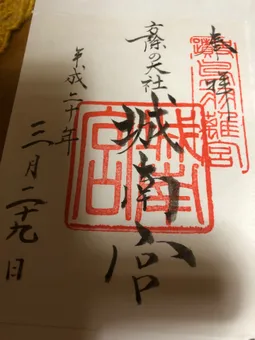 奉拝
離宮
の大社
城南宮
平成二十年
三月二十九日